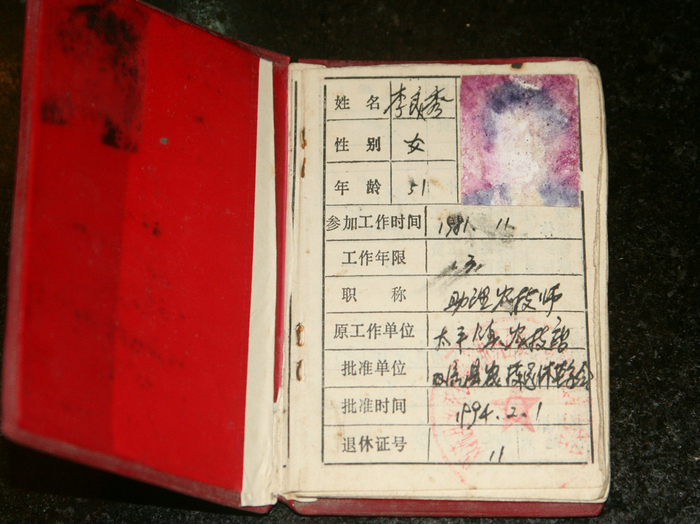 姓名 李良秀
性别 女
年龄 51
参加工作时间 1981.11.
工作年限
职称 助理农技师
原工作单位 太平镇农技站
批准单位
批准时间 1994.2.1
退休证号 11